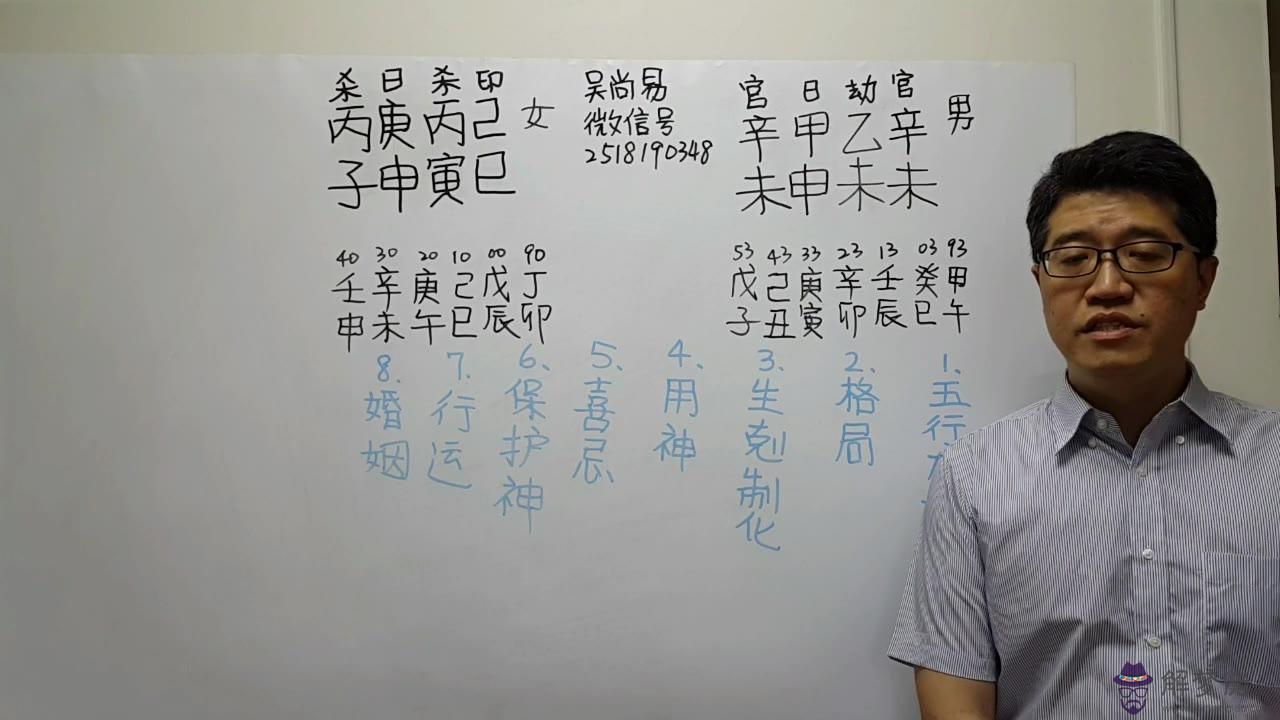 杀 日 杀 印
丙 庚 丙 己 女
子 申 寅 巳
吴尚易
微信号
2518190348
官 日 劫 官
辛 甲 乙 辛 男
未 申 未 未
40 30 20 10 00 90
壬 辛 庚 己 戊 丁
申 未 午 巳 辰 卯
53 43 33 23 13 03 93
戊 己 庚 辛 壬 癸 甲
子 丑 寅 卯 辰 巳 午
1、五行
2、格局
3、生剋制化
4、用神
5、喜忌
6、保护神
7、行运
8、婚姻
解梦